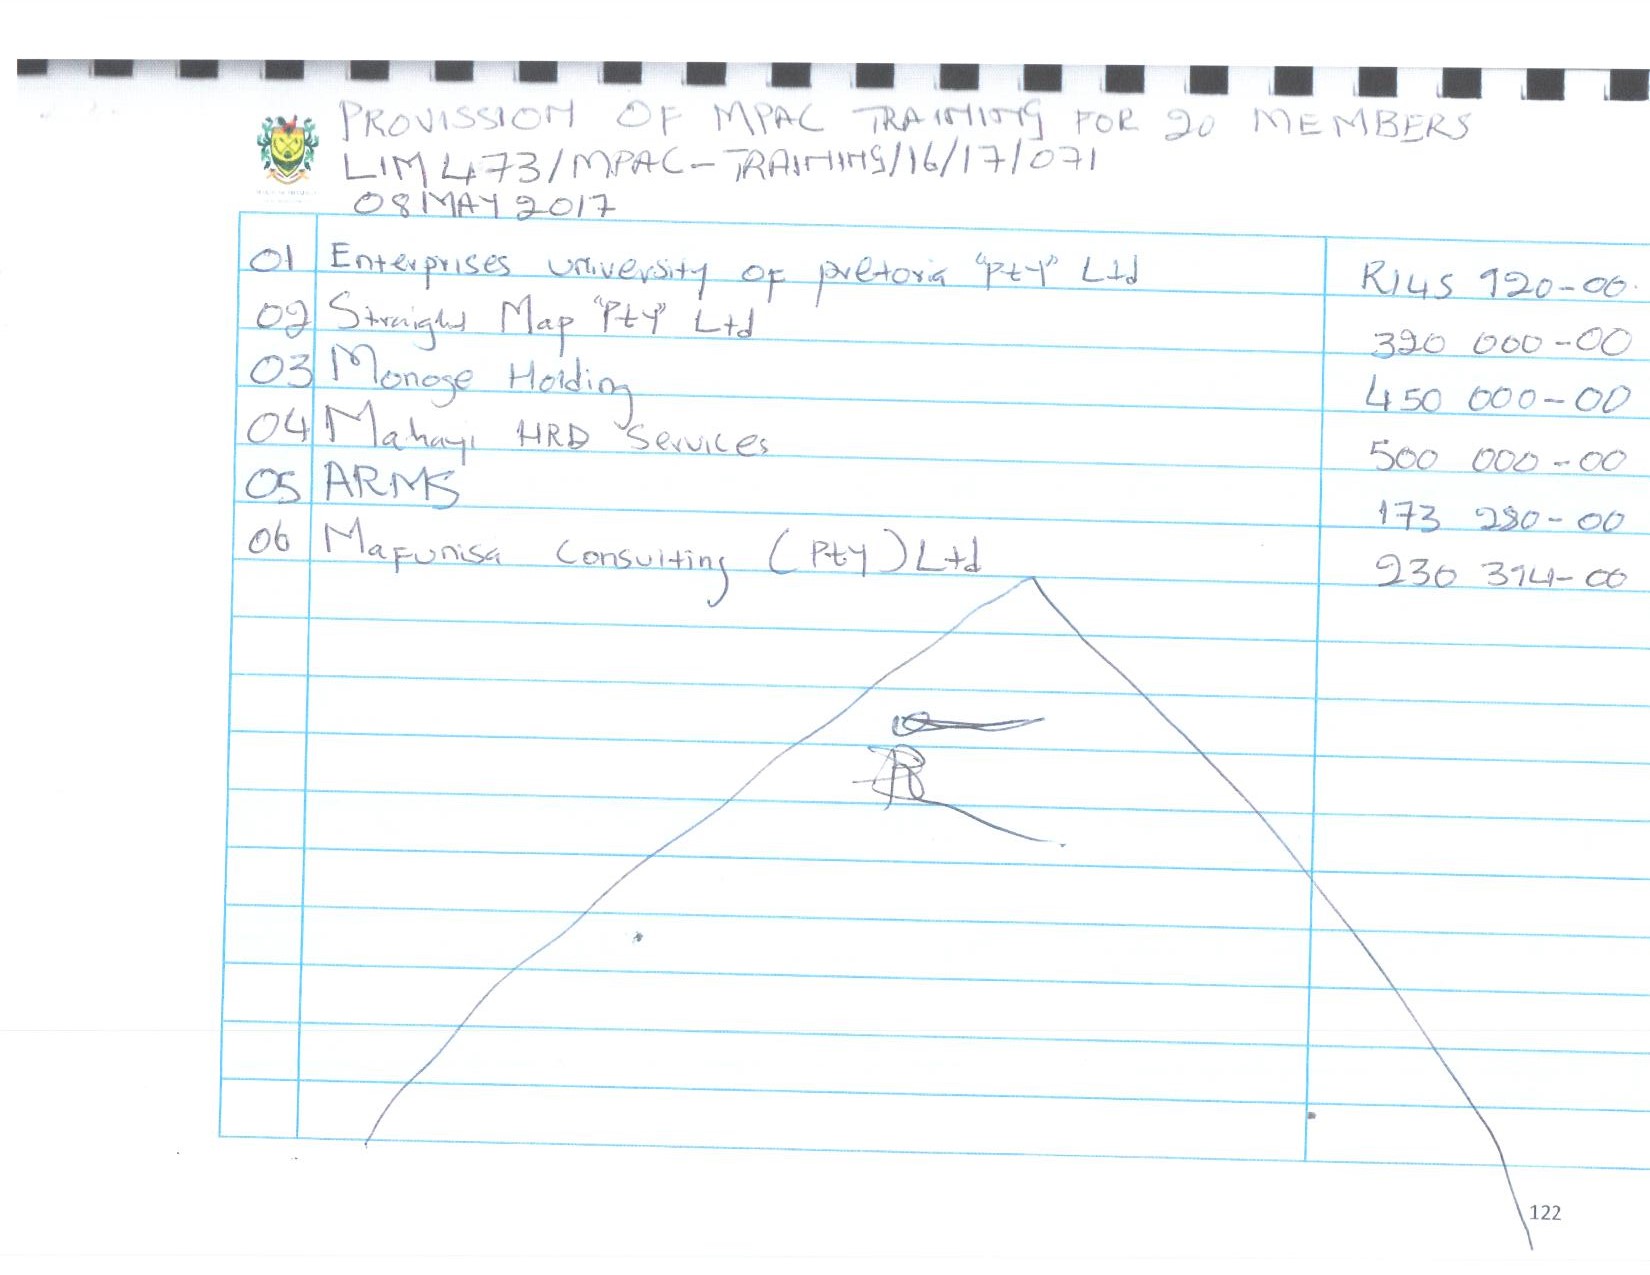 PROVISSION OF MPAC TRAINING FOR 20 MEMBERS
LIM 473/MPAC-TRAINING/16/17/071
08 MAY 2017
01 Enterprises university of pretoria "Pty" Ltd R145 920-00
02 Straight Map "Pty" Ltd 320 000-00
03 Monoge Holding 450 000-00
04 Mahayi HRD Services 500 000-00
05 ARMS 173 280-00
06 Mafunisa Consulting (Pty) Ltd 230 394-00
122